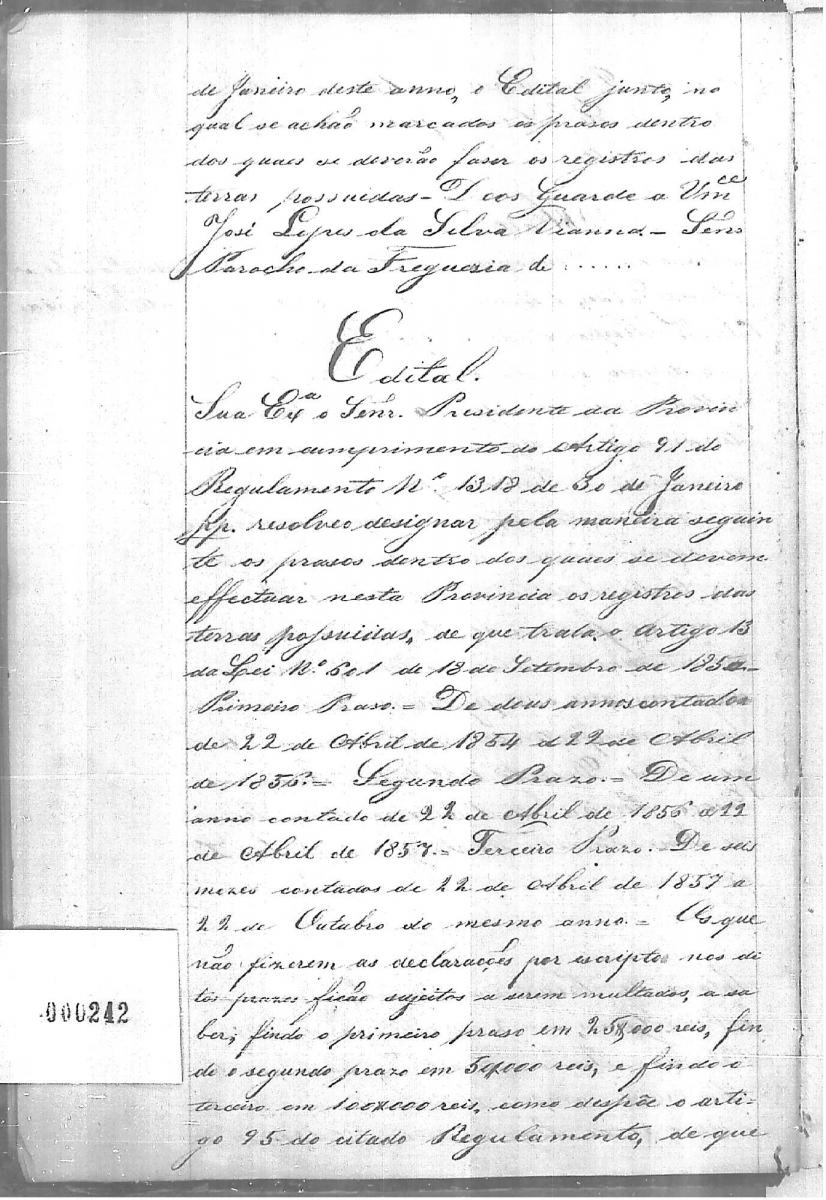 de Janeiro deste anno, o Edital junto, no
qual se achão marcados os prasos dentro
dos quaes se deverão faser os registros das
terras possuidas – Deos Guarde a Vm.ce
José Lopes da Silva Vianna – Senr.
Parocho da Freguezia de ......
Edital.
Sua Ex.a o Senr. Presidente da Provin
cia em cumprimento do Artigo 91 do
Regulamento N.o 1318 de 30 de Janeiro
pp. resolveo designar pela maneira seguin
te os prasos dentro dos quaes se devem
effectuar nesta Provincia os registros das
terras possuidas, de que trata o Artigo 13
da Lei N.o 601 de 18 de Setembro de 1850 –
Primeiro Praso. = De dous annos contados
de 22 de Abril de 1854 a 22 de Abril
de 1856. = Segundo Prazo. = De um
anno contado de 22 de Abril de 1856 a 22
de Abril de 1857. = Terceiro Prazo. – De seis
mezes contados de 22 de Abril de 1857 a
22 de Outubro do mesmo anno. = Os que
não fizerem as declarações por escripto nos di
tos prazos ficão sujeitos a serem multados, a sa
ber; findo o primeiro praso em 25$000 reis, fin
do o segundo prazo em 50$000 reis, e findo o
terceiro em 100$000 reis, como despõe o arti-
go 95 do citado Regulamento, de que
000242